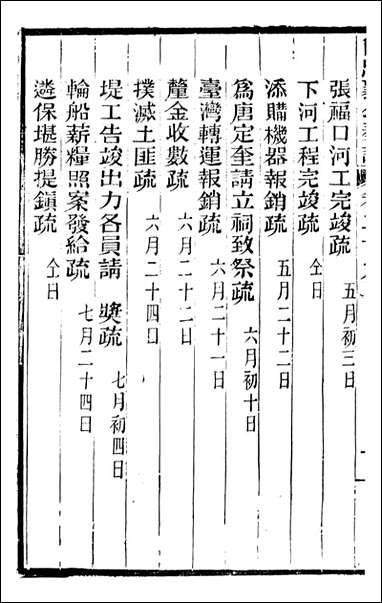 張福口河工完竣疏 五月初三日
下河工程完竣疏 仝日
添購機器報銷疏 五月二十二日
爲唐定奎請立祠致祭疏 六月初十日
臺灣轉運報銷疏 六月二十一日
釐金收數疏 六月二十二日
撲滅土匪疏 六月二十四日
堤工告竣出力各員請 奬疏 七月初四日
輪船薪糧照案發給疏 七月二十四日
遴保堪勝提鎮疏 仝日